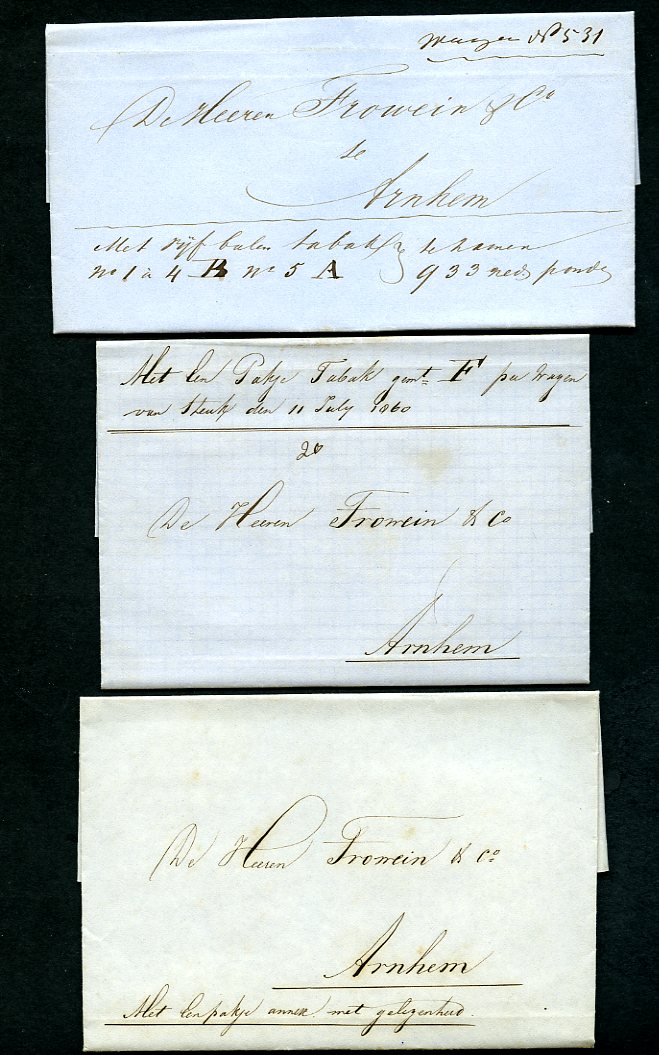 Wagen No 531
De Heeren Frowein & Co
te
Arnhem
Met vijf balen tabak te zamen
No 1 a 4 B No 5 A 933 ned ponde
Met een Pakje Tabak gemt F per Wagen
van den 11 July 1860
20
De Heeren Frowein & Co
Arnhem
De Heeren Frowein & Co
Arnhem
Met een pakje annex met gelegenheid.